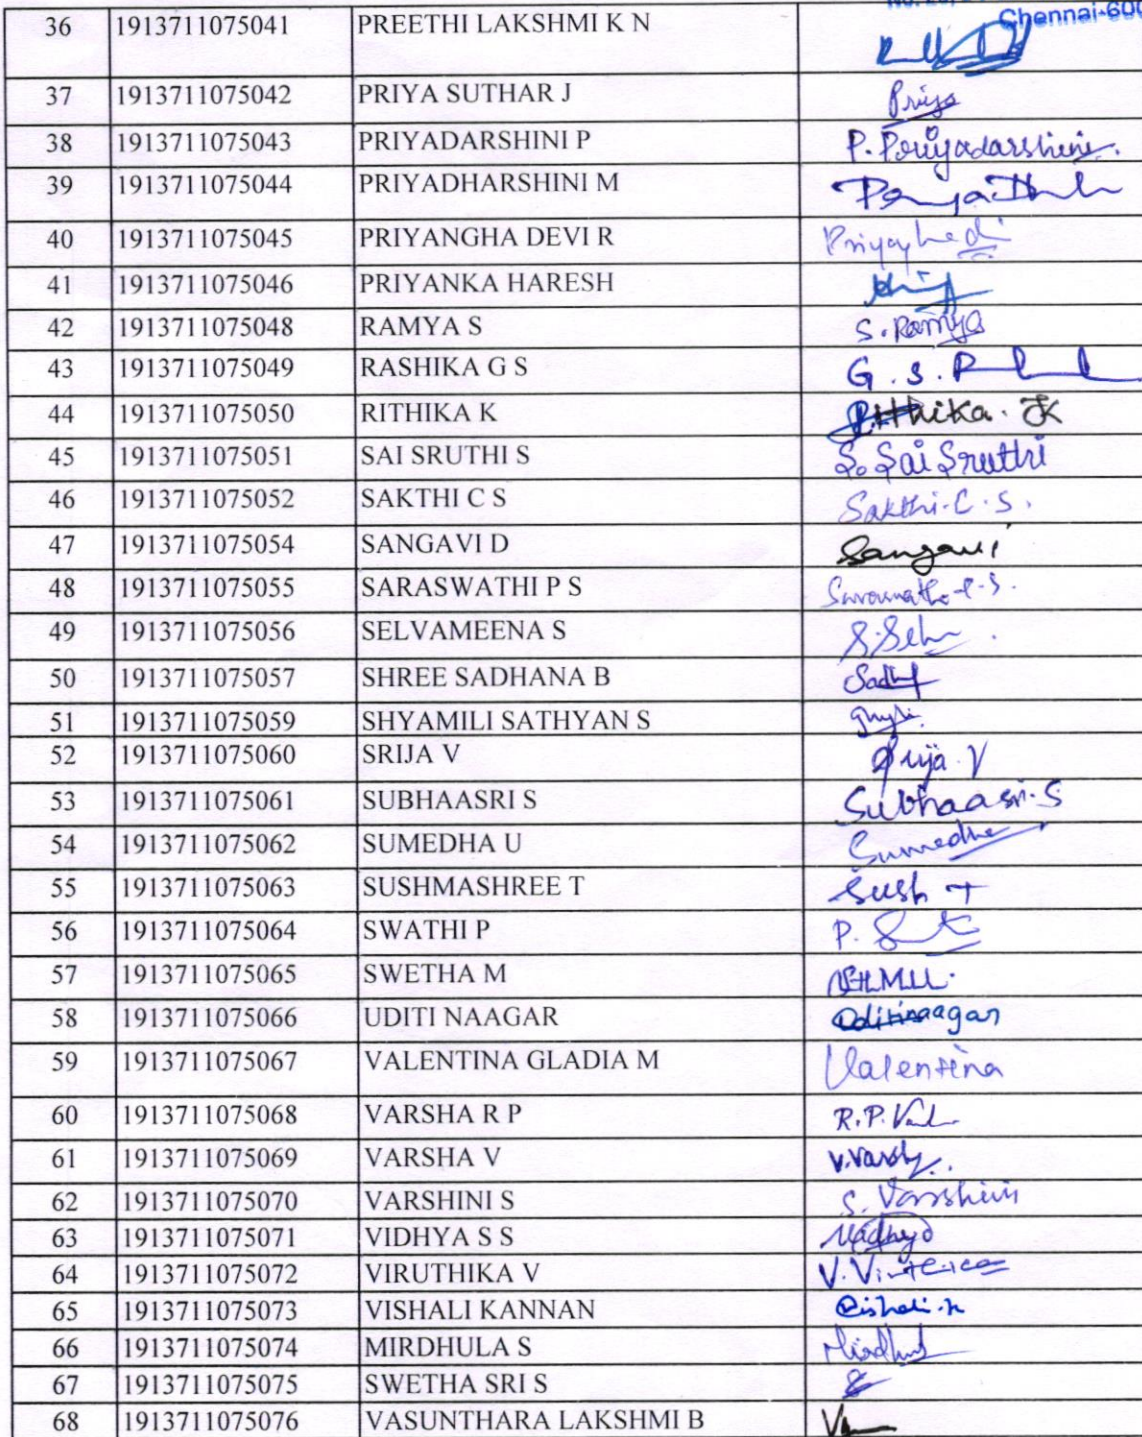 Chennai-600
36 1913711075041 PREETHI LAKSHMI K N
37 1913711075042 PRIYA SUTHAR J Priya
38 1913711075043 PRIYADARSHINI P P. Priyadarshini.
39 1913711075044 PRIYADHARSHINI M
40 1913711075045 PRIYANGHA DEVI R
41 1913711075046 PRIYANKA HARESH
42 1913711075048 RAMYA S S. Ramya
43 1913711075049 RASHIKA G S G. S.
44 1913711075050 RITHIKA K Rithika. K
45 1913711075051 SAI SRUTHI S S. Sai Sruthi
46 1913711075052 SAKTHI C S Sakthi.C.S.
47 1913711075054 SANGAVI D Sangavi
48 1913711075055 SARASWATHI P S
49 1913711075056 SELVAMEENA S
50 1913711075057 SHREE SADHANA B
51 1913711075059 SHYAMILI SATHYAN S
52 1913711075060 SRIJA V Srija. V
53 1913711075061 SUBHAASRI S Subhaasri. S
54 1913711075062 SUMEDHA U Sumedha
55 1913711075063 SUSHMASHREE T Sush T
56 1913711075064 SWATHI P P.
57 1913711075065 SWETHA M
58 1913711075066 UDITI NAAGAR Uditinaagar
59 1913711075067 VALENTINA GLADIA M Valentina
60 1913711075068 VARSHA R P R.P.
61 1913711075069 VARSHA V V.Varsh
62 1913711075070 VARSHINI S S. Varshini
63 1913711075071 VIDHYA S S
64 1913711075072 VIRUTHIKA V
65 1913711075073 VISHALI KANNAN Vishali.k
66 1913711075074 MIRDHULA S
67 1913711075075 SWETHA SRI S
68 1913711075076 VASUNTHARA LAKSHMI B